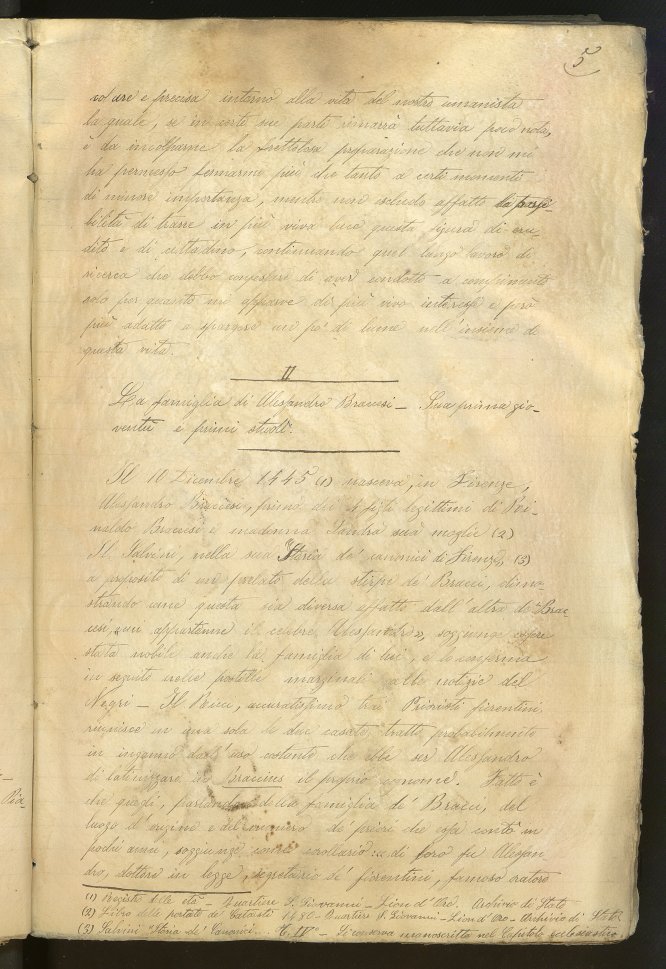 5
e precisa intorno alla vita del nostro umanista
la quale, se in certe sue parti rimarrà tuttavia poco nota,
è da incolparne la frettolosa preparazione che non mi
ha permesso fermarmi più che tanto a certi momenti
di minore importanza, mentre non escludo affatto la possi-
bilità di trarre in più viva luce questa figura di eru-
dito e di cittadino, continuando quel lungo lavoro di
ricerca che debbo confessare di aver condotto a compimento
solo per quanto mi apparve di più vivo interesse e però
più adatto a spargere un po' di lume nell'insieme di
questa vita.
II
La famiglia di Alessandro Braccesi - Sua prima gio-
ventù e primi studî.
Il 10 Dicembre 1445 (1) nasceva, in Firenze,
Alessandro Braccesi, primo dei figli legittimi di Ri-
naldo Braccesi e madonna sua moglie (2)
Il Salvini, nella sua "Storia de' canonici di Firenze, (3)
a proposito di un prelato della stirpe de' Bracci, dimo-
strando come questa sia diversa affatto dall'altra de' Brac-
cesi, cui appartenne il celebre Alessandro, soggiunge essere
stata nobile anche la famiglia di lui, e lo conferma
in seguito nelle postille marginali alle notizie del
Negri - Il accuratissimo tra Prioristi fiorentini
riunisce in una sola le due casate, tratto probabilmente
in inganno dall'uso costante che ebbe ser Alessandro
di latinizzare in Braccius il proprio cognome. Fatto è
che quegli, parlando della famiglia de' Bracci, del
luogo d'origine e del numero de' priori che essa contò in
pochi anni, soggiunge come corollario: "di loro fu Alessan
dro, dottore in legge, segretario de' fiorentini, famoso oratore
(1) Registri delle età - Quartiere S. Giovanni - Lion d'Oro. Archivio di Stato
(2) Libro delle portate al Catasto 1480 - Quartiere S. Giovanni - Lion d'Oro - Archivio di Stato
(3) Salvini "Storia de' Canonici... Si conserva manoscritta nel Capitolo ecclesiastico